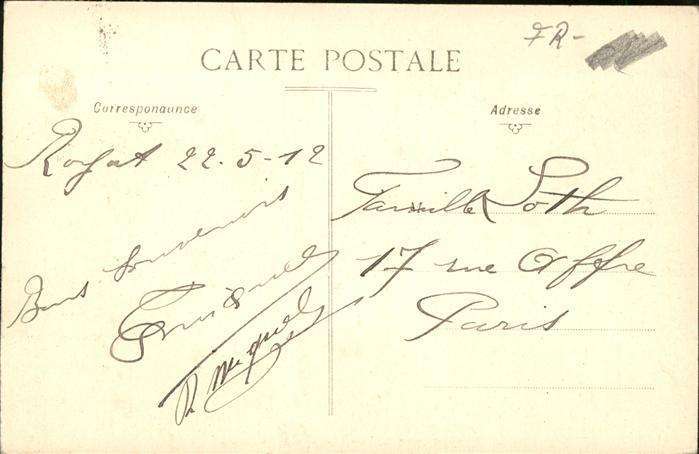 FR-
CARTE POSTALE
Correspondance
Royat 22-5-12
Bons souvenirs
Adresse
Famille Loth
17 rue Affre
Paris